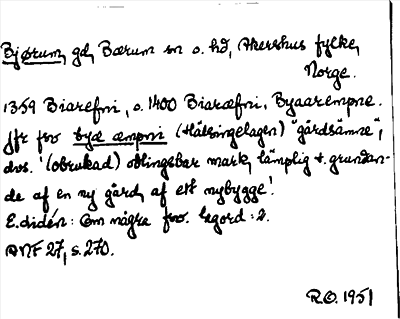 Bjørum, gd, Bærum sn o. hd, Akershus fylke,
Norge.
1359 Biarefni, o. 1400 Biaræfni, Byaarempne.
Jfr fsv byæ æmpni (Hälsingelagen) "gårdsämne",
dvs. '(obrukad) odlingsbar mark, lämplig f. grundan-
de af en ny gård, af ett nybygge'.
E. Lidén: Om några fsv. lagord: 2.
ANF 27, s. 270.
R.O. 1951